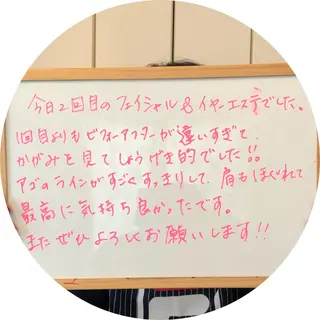 今日2回目のフェイシャル&イヤーエステでした。
1回目よりもビフォーアフターが違いすぎて、
かがみを見てしょうげき的でした!!
アゴのラインがすごくすっきりして、肩もほぐれて
最高に気持ち良かったです。
またぜひよろしくお願いします!!